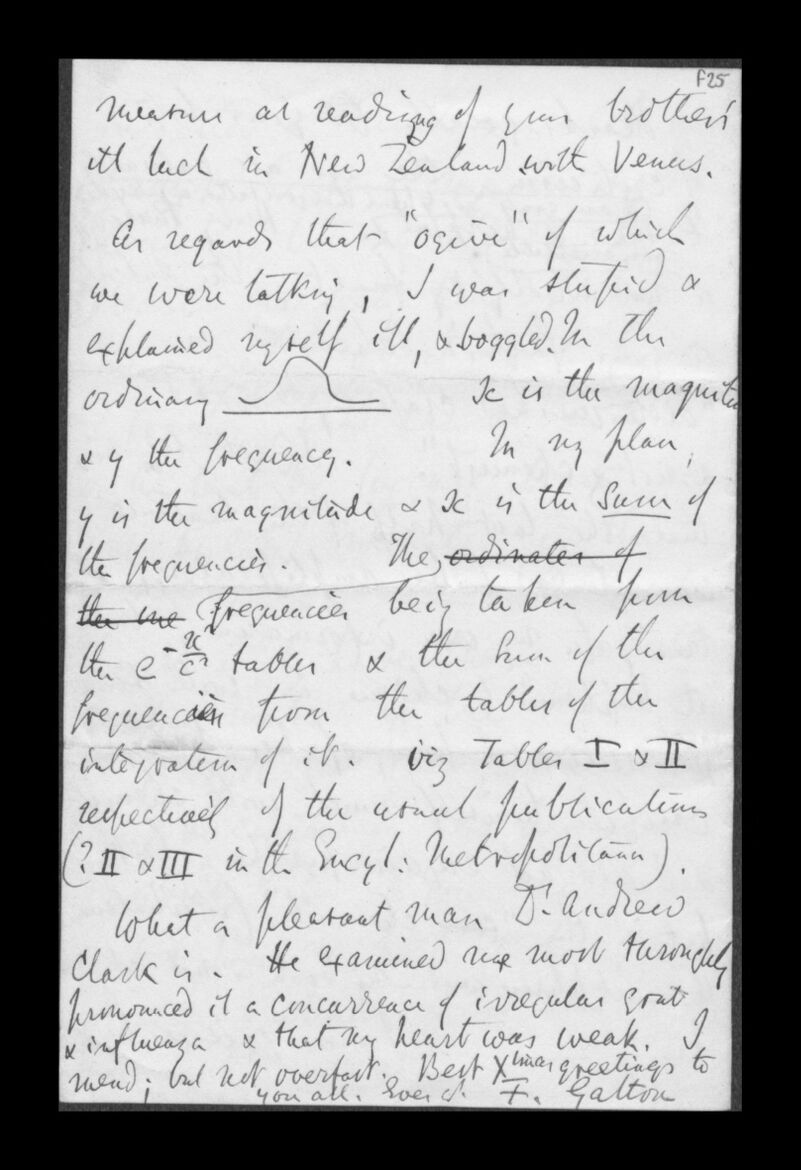 f25
measure at reading of your brother's
ill luck in New Zealand with Venus.
As regards that "ogive" of which
we were talking, I was stupid &
explained myself ill, & boggled. In the
ordinary x is the magnitude
& y the frequency. In my plan,
y is the magnitude & x is the sum of
the frequencies. The ordinates of
the one frequencies being taken from
the e^-x²/c² tables & the sum of the
frequencies from the tables of the
integration of it. viz Tables I & II
respectively of the usual publications
(? II & III in the Encycl: Metropolitana).
What a pleasant man Dr. Andrew
Clark is. He examined me most throughly
pronounced it a concurrence of irregular gout
& influenza & that my heart was weak. I
mend; but not overfast. Best Xmas greetings to
you all. Ever F. Galton